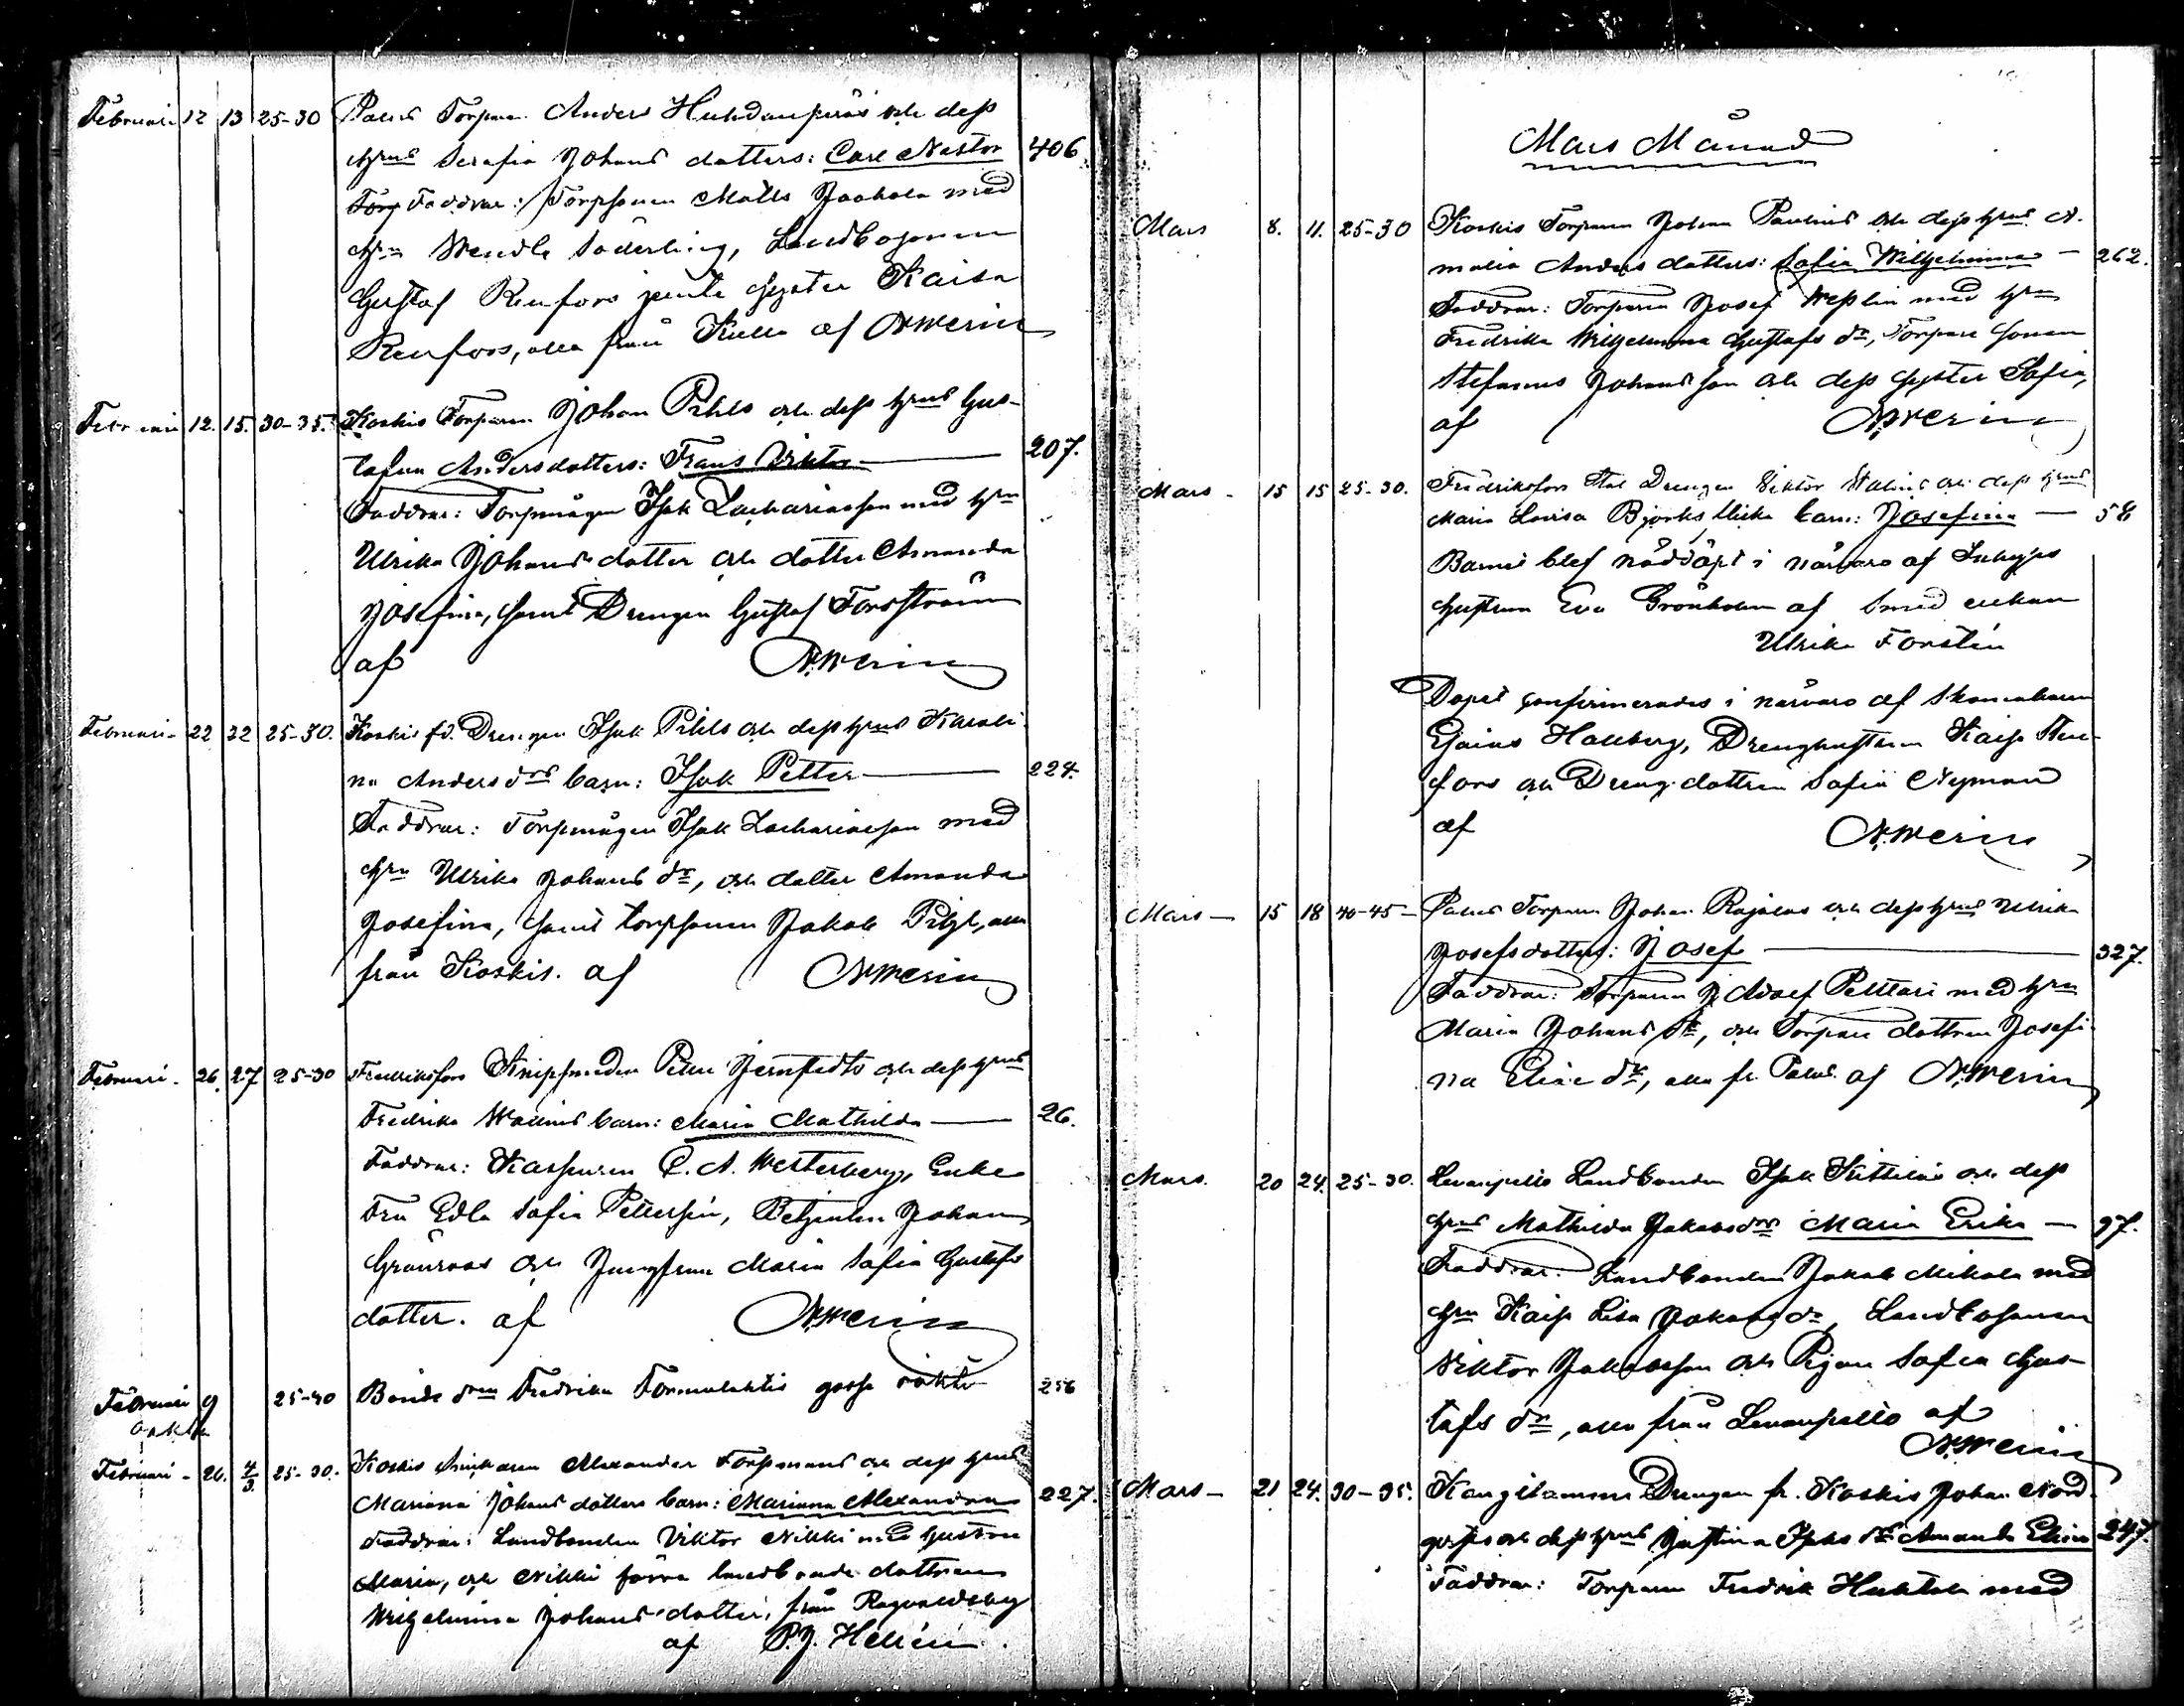 Februari 12 13 25-30 Palus Torparen Anders Huhdanperäs och dess
hrus Serafia Johans dotters: Carl Nestor 406
Faddrar: Torpsonen Matts Jaakola med
hru Wendla Söderling, Landbosonen
Gustaf Renfors jemte syster Kaisa
Renfors, alla från Kulla af
Februari 12. 15. 30-35. Koskis Torparen Johan Pihls och dess hrus Gus-
tafva Andersdotters: Frans Viktor 207.
Faddrar: Torpmågen Isak Zachariasson med hru
Ulrika Johansdotter och dotter Amanda
Josefina, samt Drengen Gustaf Forsström
af
Februari 22 22 25-30. Koskis fd. Drengen Isak Pihls och dess hrus Karoli-
na Anders drs barn: Isak Petter 224.
Faddrar: Torpmågen Isak Zachariasson med
hru Ulrika Johans dr, och dotter Amanda
Josefina, samt torpsonen Jakob Pihl, alla
från Koskis. af
Februari. 26. 27 25-30 Fredriksfors Knipsmeden Petter Jernstedts och dess hrus
Fredrika Wallins barn: Maria Mathilda 26.
Faddrar: C. A. Westerberg, Enke
Fru Edla Sofia Pettersén, Betjenten Johan
Grönroos och Jungfrun Maria Sofia Gustafs
dotter. af
Februari 9 25-40 Bonde drn Fredrika gosse oäkta 256
oäkta
Februari 26. 4/3. 25-30. Koskis Alexander Torpmans och dess hrus
Mariana Johans dotters barn: Marianna Alexandra 227.
Faddrar: Landbonden Viktor Nikki med hustru
Maria, och Nikki förra landbonde dottren
Wilhelmina Johans dotter, från Ragvaldsby
af P. J. Hellén.
Mars Månad
Mars 8. 11. 25-30 Koskis Torparen Johan Paulins och dess hrus A-
malia Anders dotters: Sofia Wilhelmina 262.
Faddrar: Torparen Josef Wesslin med hru
Fredrika Wilhelmina Gustafs dr, Torpare sonen
Stefanus Johansson och dess syster Sofia,
af
Mars 15 15 25-30. Fredriksfors Stal Drengen Viktor Wallins och dess hrus
Maria Lovisa Björkqvists barn: Josefina 58
Barnet blef nöddöpt i närvaro af Inhyses
hustrun Eva Grönholm af Smed enkan
Ulrika Forstén
Dopet confirmerades i närvaro af Skomakaren
Hallberg, Drenghustrun Kaisa
fors och Dreng dottren Sofia Nyman
af
Mars 15 18 40-45 Palus Torparen Johan Rajalas och dess hrus Ulrika
Josefsdotters: Josef 327.
Faddrar: Torparen J. Adolf Pelttari med hru
Maria Johans dr, och Torpare dottren Josefi-
na Elise dr, alla fr. Palus af
Mars. 20 24. 25-30. Levanpelto Landbonden Isak Kittiläs och dess
hrus Mathilda Jakobs drs Maria Erika 97.
Faddrar: Landbonden Jakob Mikola med
hru Kaisa Lisa Jakobs dr, Landbosonen
Viktor Jakobsson och Pigan Sofia Gus-
tafs dr, alla från Levanpelto af
Mars 21 24. 30-35. Kangilammin Drengen fr. Koskis Johan Nord-
qvists och dess hrus Justina Isaks drs Amanda Elina 247.
Faddrar: Torparen Fredrik Huhtala med